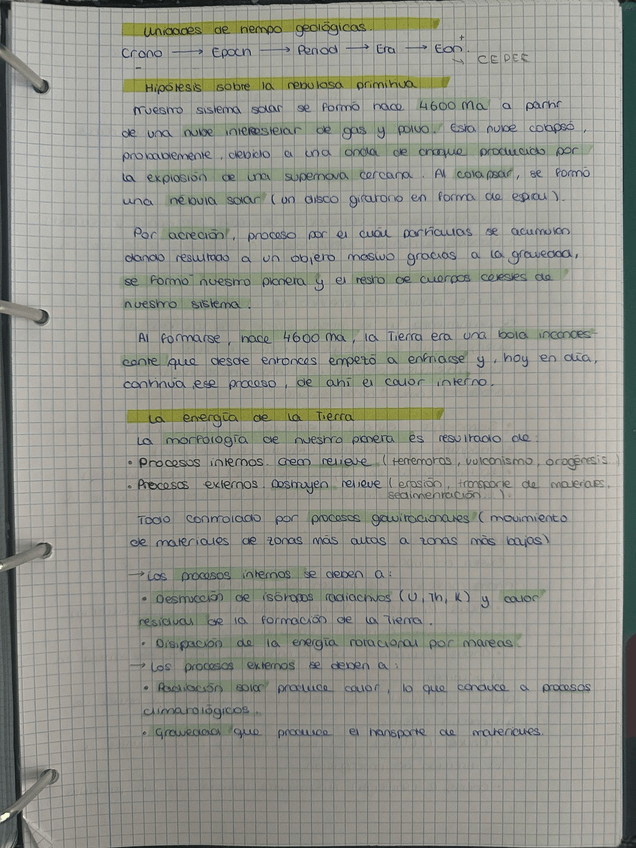 Unidades de tiempo geológicas.
Crono → Epoch → Period → Era → Eon
- + ↳ CEPEE
Hipótesis sobre la nebulosa primitiva
Nuestro sistema solar se formó hace 4600 Ma a partir
de una nube interestelar de gas y polvo. Esta nube colapsó,
probablemente, debido a una onda de choque producida por
la explosión de una supernova cercana. Al colapsar, se formó
una nébula solar (un disco giratorio en forma de espiral).
Por acreción, proceso por el cuál partículas se acumulan
dando resultado a un objeto masivo gracias a la gravedad,
se formó nuestro planeta y el resto de cuerpos celestes de
nuestro sistema.
Al formarse, hace 4600 ma, la Tierra era una bola incandes-
cente que desde entonces empezó a enfriarse y, hoy en día,
continúa ese proceso, de ahí el calor interno.
La energía de la Tierra
La morfología de nuestro planeta es resultado de:
• Procesos internos. Crean relieve (terremotos, vulcanismo, orogénesis)
• Procesos externos. Destruyen relieve (erosión, transporte de materiales,
sedimentación...).
Todo controlado por procesos gravitacionales (movimiento
de materiales de zonas más altas a zonas más bajas)
→ Los procesos internos se deben a:
• Destrucción de isótopos radiactivos (U, Th, K) y calor
residual de la formación de la Tierra.
• Disipación de la energía rotacional por mareas.
→ Los procesos externos se deben a:
• Radiación solar produce calor, lo que conduce a procesos
climatológicos.
• Gravedad que produce el transporte de materiales.